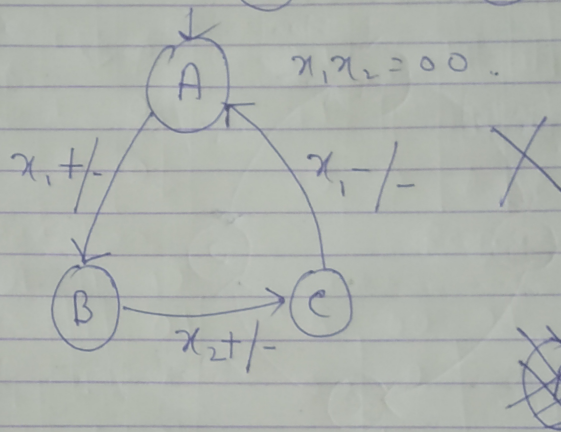 A
x₁x₂ = 00.
x₁+/-
x₁-/-
B
C
x₂+/-